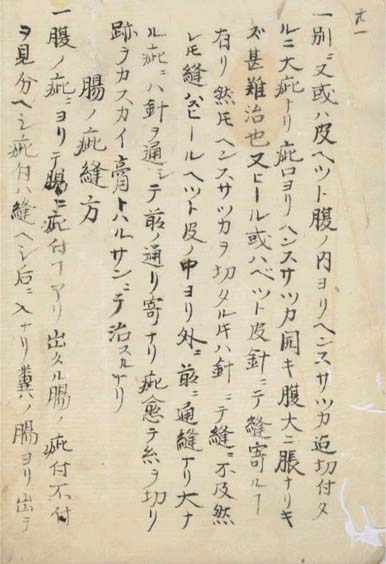 一別ニ又或ハ皮ヘット腹ノ内ヨリヘンスサツカ迄切付タ
ルニ大疵ナリ疵口ヨリヘンスサツカ開キ腹大ニ脹ナリキ
甚難治也又ヒール或ハベット皮針ニテ縫寄ルヿ
有リ然𪜈ヘンスサツカヲ切タル𪜈ハ針ニテ縫ニ不及然
レ𪜈縫ハヒールヘット皮ノ中ヨリ外ニ前ニ通縫ナリ大ナ
ル疵ニハ針ヲ通シテ前ノ通リ寄ナリ疵愈テ糸ヲ切リ
跡ヲカスカイ膏トハルサンニテ治スルナリ
腸ノ疵縫方
一腹ノ疵ニヨリテ腸ニ疵付ヿアリ出タル腸ノ疵付不付
ヲ見分ヘシ疵付ハ縫ヘシ后ニ入ナリ糞ノ腸ヨリ出テ